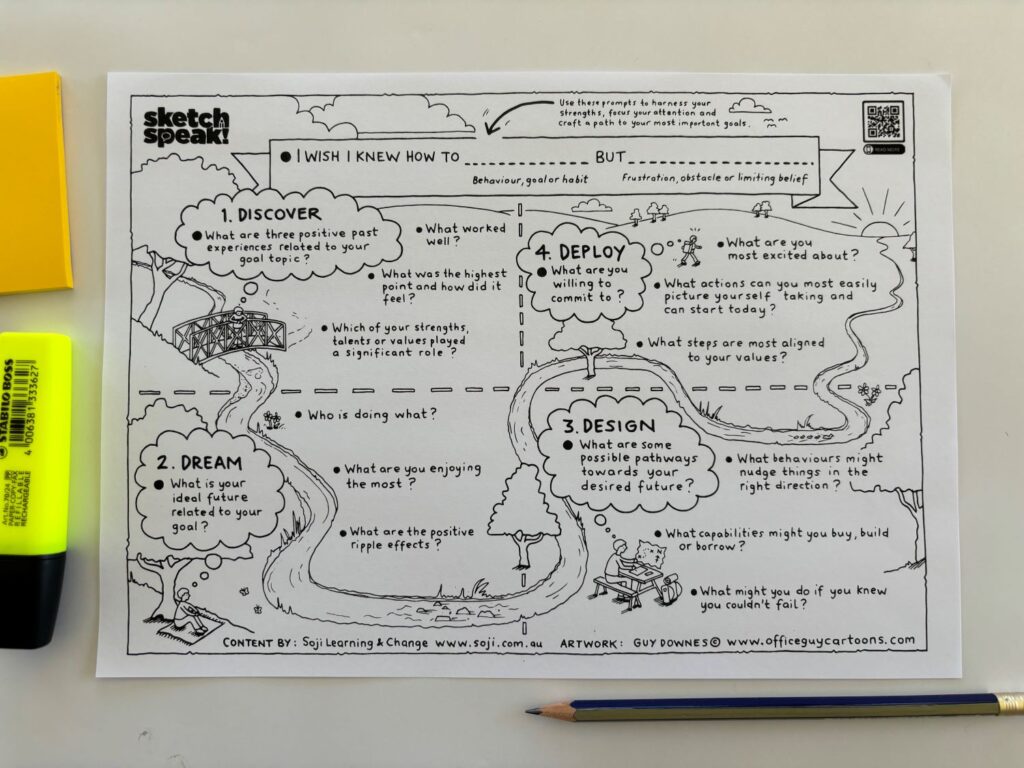 sketch
speak!
Use these prompts to harness your
strengths, focus your attention and
craft a path to your most important goals.
READ MORE
I WISH I KNEW HOW TO BUT
Behaviour, goal or habit
Frustration, obstacle or limiting belief
1. DISCOVER
What are three positive past
experiences related to your
goal topic?
What worked
well?
What was the highest
point and how did it
feel?
Which of your strengths,
talents or values played
a significant role?
4. DEPLOY
What are you
willing to
commit to?
What are you
most excited about?
What actions can you most easily
picture yourself taking and
can start today?
What steps are most aligned
to your values?
2. DREAM
What is your
ideal future
related to your
goal?
Who is doing what?
What are you enjoying
the most?
What are the positive
ripple effects?
3. DESIGN
What are some
possible pathways
towards your
desired future?
What behaviours might
nudge things in the
right direction?
What capabilities might you buy, build
or borrow?
What might you do if you knew
you couldn't fail?
CONTENT BY: Soji Learning & Change www.soji.com.au ARTWORK: GUY DOWNES © www.officeguycartoons.com
STABILO BOSS
4 006381 333627
Art.No.70/24
PAPER-COPY-FAX
REFILLABLE
RECHARGEABLE